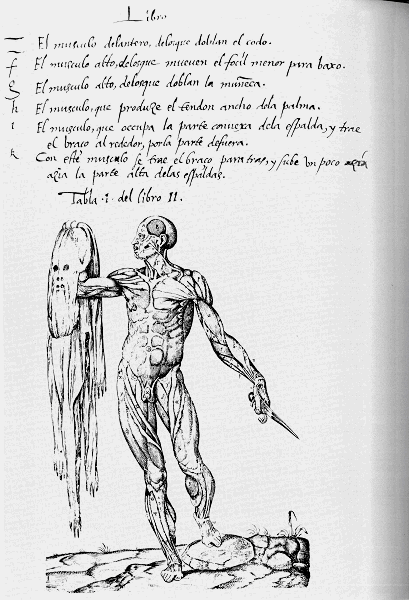 Libro
El musculo delantero, delosque doblan el codo.
f El musculo alto, delosque mueven el focil menor para baxo.
g El musculo alto, delosque doblan la muñeca.
h El musculo, que produze el tendon ancho dela palma.
i El musculo, que occupa la parte convexa dela espalda, y trae
el braco al rededor, por la parte defuera.
k Con este musculo se trae el braco para tras, y sube un poco azia
azia la parte alta delas espaldas.
Tabla .i. del libro II.